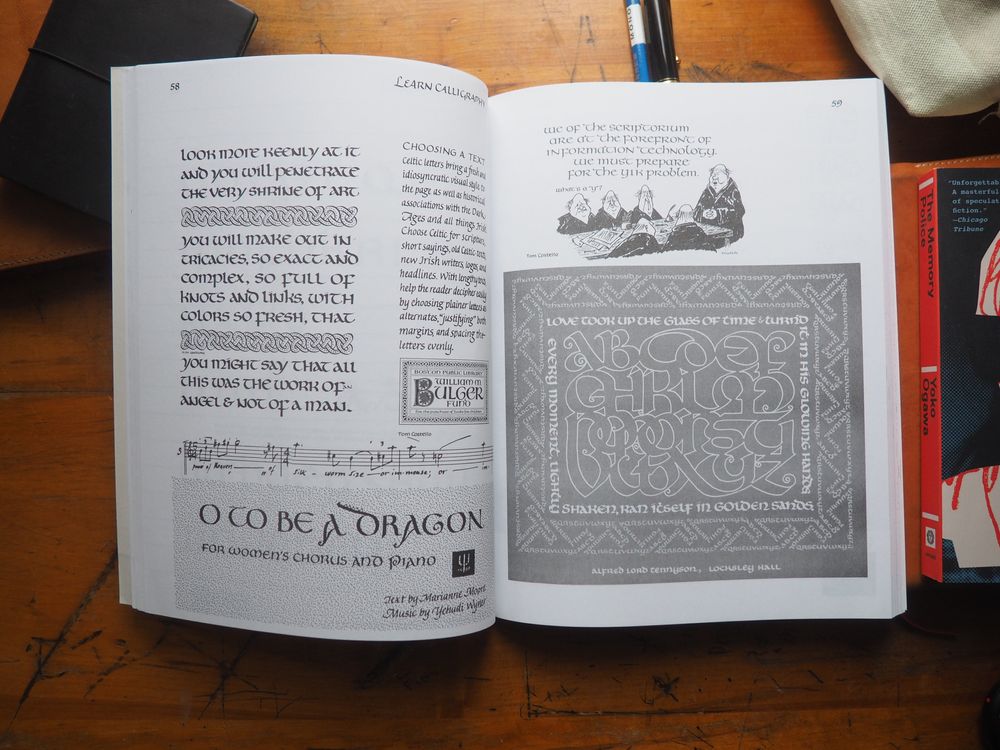 58
LEARN CALLIGRAPHY
LOOK MORE KEENLY AT IT
AND YOU WILL PENETRATE
THE VERY SHRINE OF ART
YOU WILL MAKE OUT IN
TRICACIES, SO EXACT AND
COMPLEX, SO FULL OF
KNOTS AND LINKS, WITH
COLORS SO FRESH, THAT
YOU MIGHT SAY THAT ALL
THIS WAS THE WORK OF
ANGEL & NOT OF A MAN.
CHOOSING A TEXT
Celtic letters bring a fresh and
idiosyncratic visual style to
the page as well as historical
associations with the Dark
Ages and all things Irish.
Choose Celtic for scripture,
short sayings, old Celtic texts,
new Irish writers, logos, and
headlines. With lengthy text,
help the reader decipher easily
by choosing plainer letters as
alternates, "justifying" both
margins, and spacing the
letters evenly.
BOSTON PUBLIC LIBRARY
WILLIAM M.
BULGER
FUND
Tom Costello
3
power of Heaven, of silk-worm size or immense; or
O TO BE A DRAGON
FOR WOMEN'S CHORUS AND PIANO
Text by Marianne Moore
Music by Yehudi Wyner
59
WE OF THE SCRIPTORIUM
ARE AT THE FOREFRONT OF
INFORMATION TECHNOLOGY.
WE MUST PREPARE
FOR THE Y1K PROBLEM.
WHAT'S A "Y"?
Tom Costello
LOVE TOOK UP THE GLASS OF TIME & TURN'D
IT IN HIS GLOWING HANDS
EVERY MOMENT, LIGHTLY
SHAKEN, RAN ITSELF IN GOLDEN SANDS
ALFRED LORD TENNYSON, LOCKSLEY HALL
"Unforgettable
A masterful
of speculat
fiction."
—Chicago
Tribune
The Memory
Police
Yoko
Ogawa